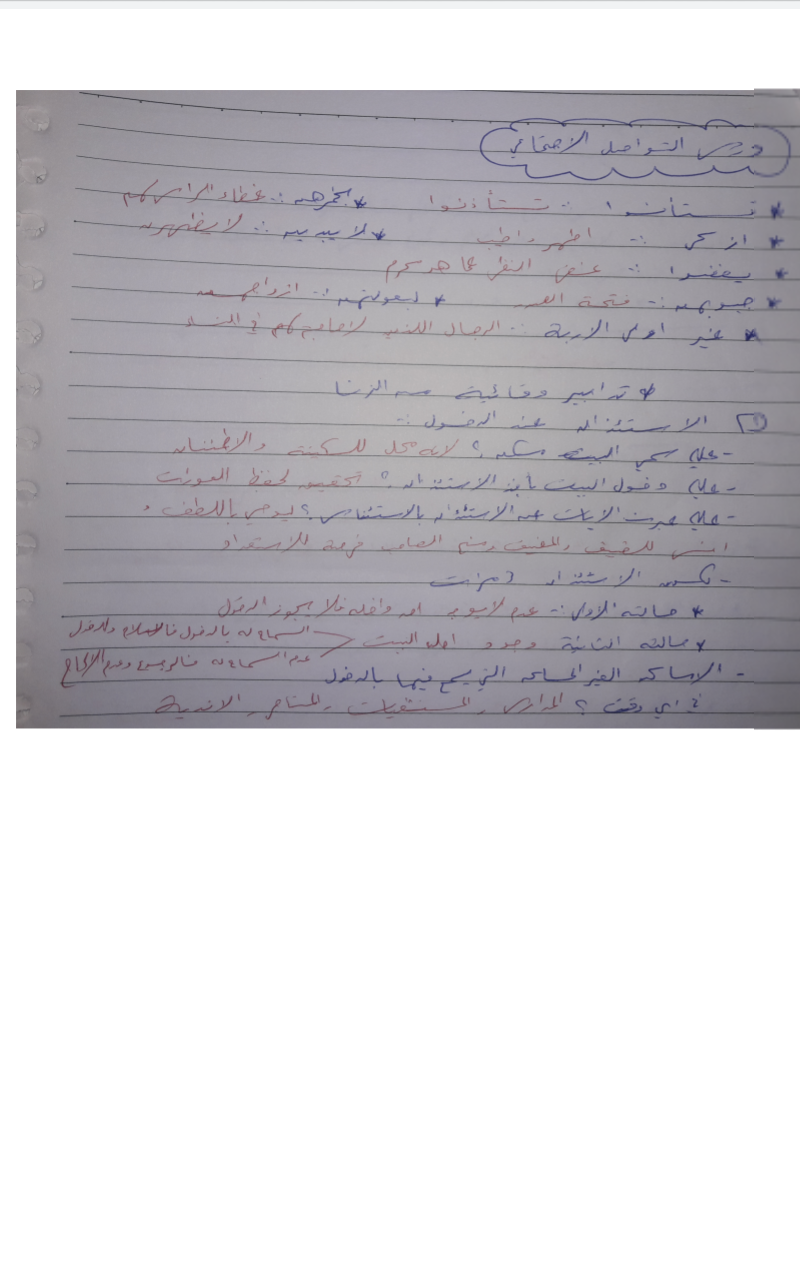 درس التواصل الاجتماعي
* تستأنسوا :- تستأذنوا * بخمرهن :- غطاء الراس لهم
* ازكى :- اطهر واطيب * لا يبدين :- لا يظهرون
* يغضوا :- غض النظر عما هو محرم
* جيوبهن :- فتحة الصدر * لبعولتهن :- ازواجهن
* غير اولي الاربة :- الرجال اللذين لا حاجة لهم في النساء
* تدابير وقائية من الزنا
① الاستئذان عند الدخول :-
- علل سمي البيت مسكن ؟ لانه محل للسكينة والاطمئنان
- علل دخول البيت بأخذ الاستئذان ؟ تحقيق لحفظ العورات
- علل عبرت الايات عن الاستئذان بالاستئناس ؟ ليوحي باللطف و
انس للضيف والمضيف ومنح الصاحب فرصة للاستعداد
- يكون الاستئذان 3 مرات
* حالته الاولى :- عدم لا يوجد احد داخله فلا يجوز الدخول
* حالته الثانية وجود اهل البيت السماح له بالدخول فالسلام والدخول
عدم السماح له فالرجوع وعدم الالحاح
- الاماكن الغير الخاصة التي يسمح فيها بالدخول
في اي وقت ؟ المدارس والمستشفيات والمتاجر الاندية